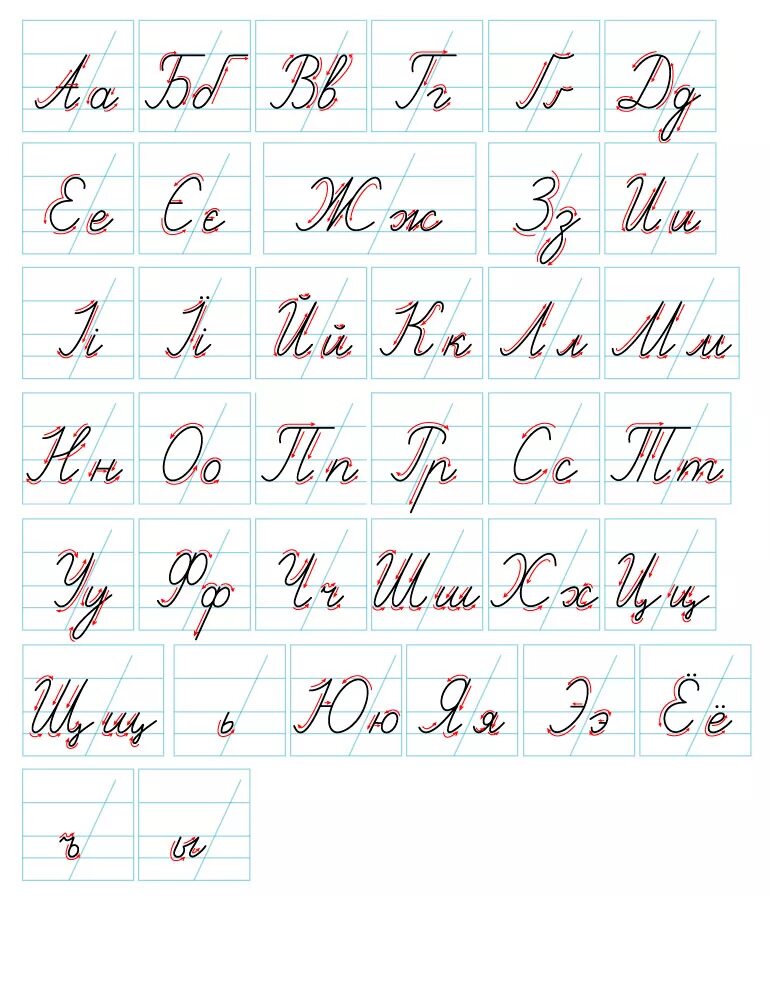 Аа Бб Вв Гг Ґґ Дд
Ее Єє Жж Зз Ии
Іі Її Йй Кк Лл Мм
Нн Оо Пп Рр Сс Тт
Уу Фф Чч Шш Хх Цц
Щщ ь Юю Яя Ээ Ёё
ъ ы